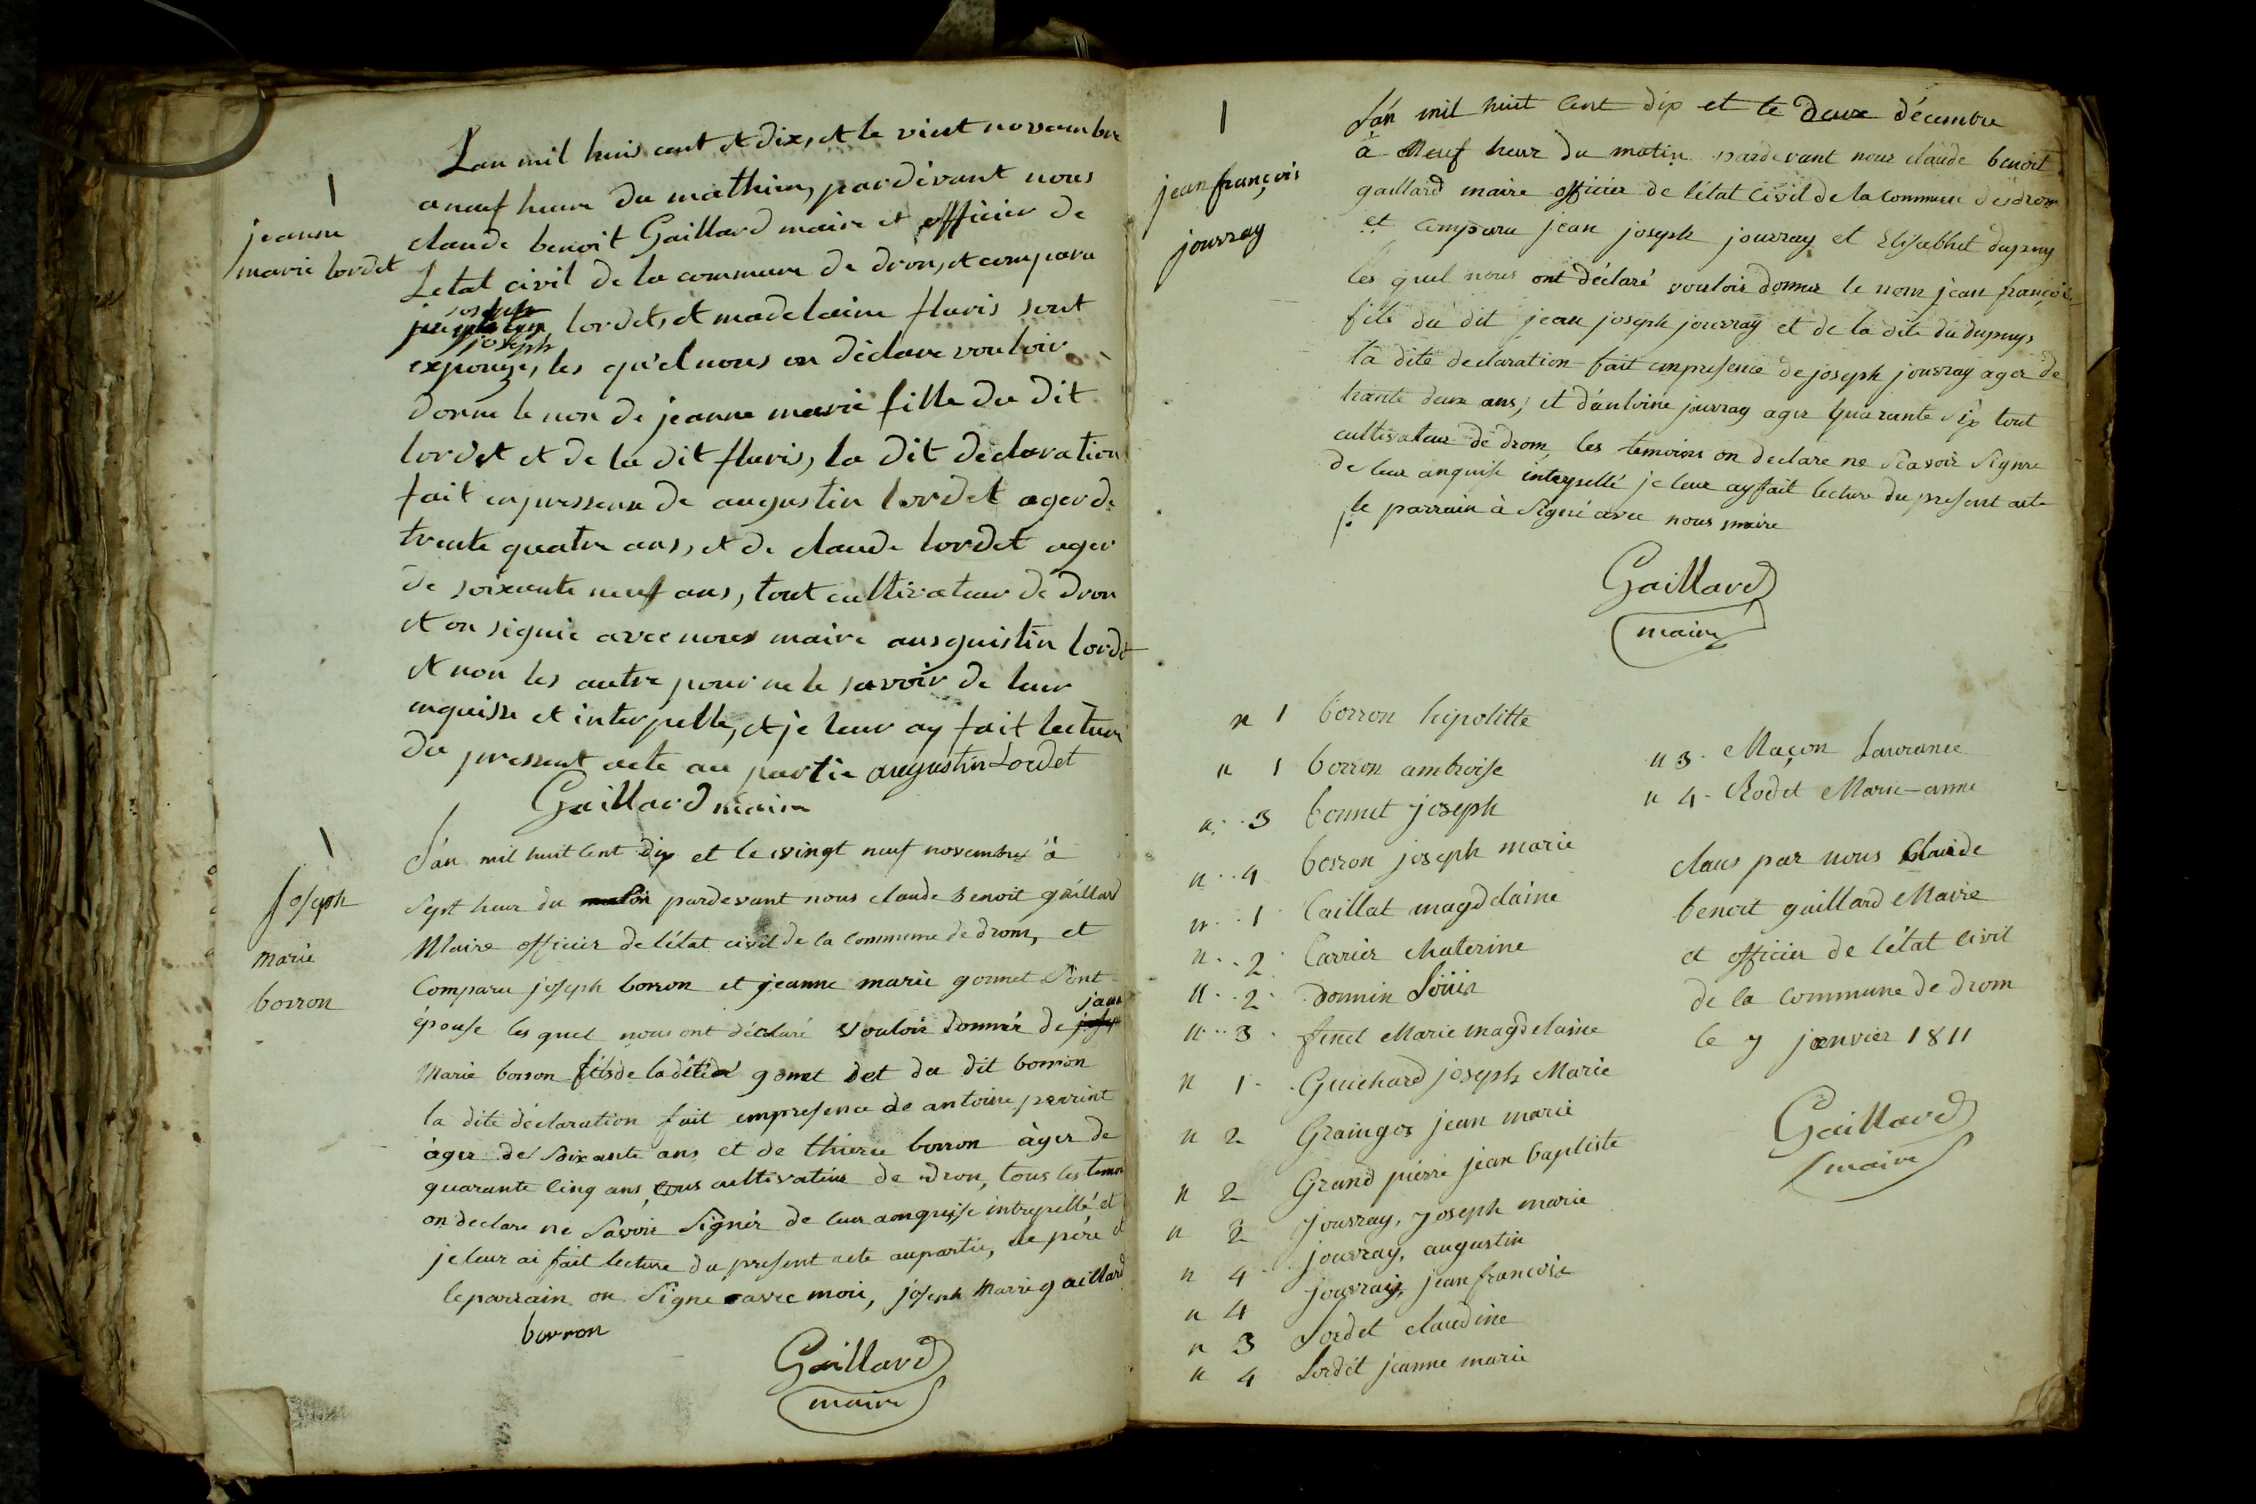 jeanne
marie lordet
Lan mil huis cent et dix, et le vint novembre
a neuf heure du mathien, pardevant nous
claude benoit Gaillard maire et officier de
Letat civil de la commune de dron, et compara
joseph lordet, et madelaine fluris sont
exponze, les qu'el nous on declare vouloir
donne le non de jeanne marie fille du dit
lordet et de la dit fluris, la dit declaration
fait en pressense de augustin lordet ager de
trente quatre ans, et de claude lordet ager
de soixante neuf ans, tout cultivateur de dron
et on signie avec nous maire ausguistin lordet
et non les autre pour ne le savoir de leur
enquisse et interpelle, et je leur ay fait lecture
du pressent acte au partie augustin Lordet
Gaillard maire
joseph
marie
borron
L'an mil huit cent dix et le vingt neuf novembre à
sept heur du pardevant nous claude Benoit gaillard
Maire officier de l'état civil de la commune de drom, et
Comparu joseph borron et jeanne marie gonnet Sont
épouse les quel nous ont déclaré vouloir donner de
Marie borron fils de la dite gonnet det du dit borron
la dite déclaration fait empresence de antoine perrint
àger de soixante ans et de thierie borron àger de
quarante cinq ans, tous cultivateur de dron, tous les temoin
on declare ne Savoir Signér de leur aonquise intrepellé et
je leur ai fait lecture du present acte aupartie, le père et
le parrain on Signe avec moii, joseph Marie gaillard
borron
Gaillard
maire
jean françois
jouvray
L'an mil huit cent dix et le deux décembre
à Neuf heur du matin pardevant nous claude benoit
gaillard maire officier de l'état Civil de la commune de drom
et comparu jean joseph jouvray et Elisabhet dupuy
les quel nous ont déclaré vouloir donner le nom jean françois
fils du dit jean joseph jouvray et de la dite du dupuys
la dite declaration fait empresence de joseph jouvray ager de
trante deux ans, et d'antoine jouvray ager quarante Six tout
cultivateur de drom, les temoins on declare ne Scavoir Signre
de leur anquise interpellé je leur ay fait lecture du present acte
le parrain à Signé avec nous maire
Gaillard
maire
n 1 borron hipolitte
n 1 borron ambroise
n 3 bonnet joseph
n 4 borron joseph marie
n 1 Caillat magdelaine
n 2 Carrier Chaterine
n 2 donnin Loüis
n 3 finet Marie magdelaine
n 1 Guichard joseph Marie
n 2 Graingos jean marie
n 2 Grand pierre jean baptiste
n 2 Jouvray, joseph marie
n 4 jouvray, augustin
n 4 jouvray, jean francois
n 3 Lordet claudine
n 4 Lordet jeanne marie
n 3 Maçon Laurance
n 4 Rodet Marie-anne
claus par nous Claude
benoit gaillard Maire
et officier de l'état civil
de la commune de drom
le 7 janvier 1811
Gaillard
maire